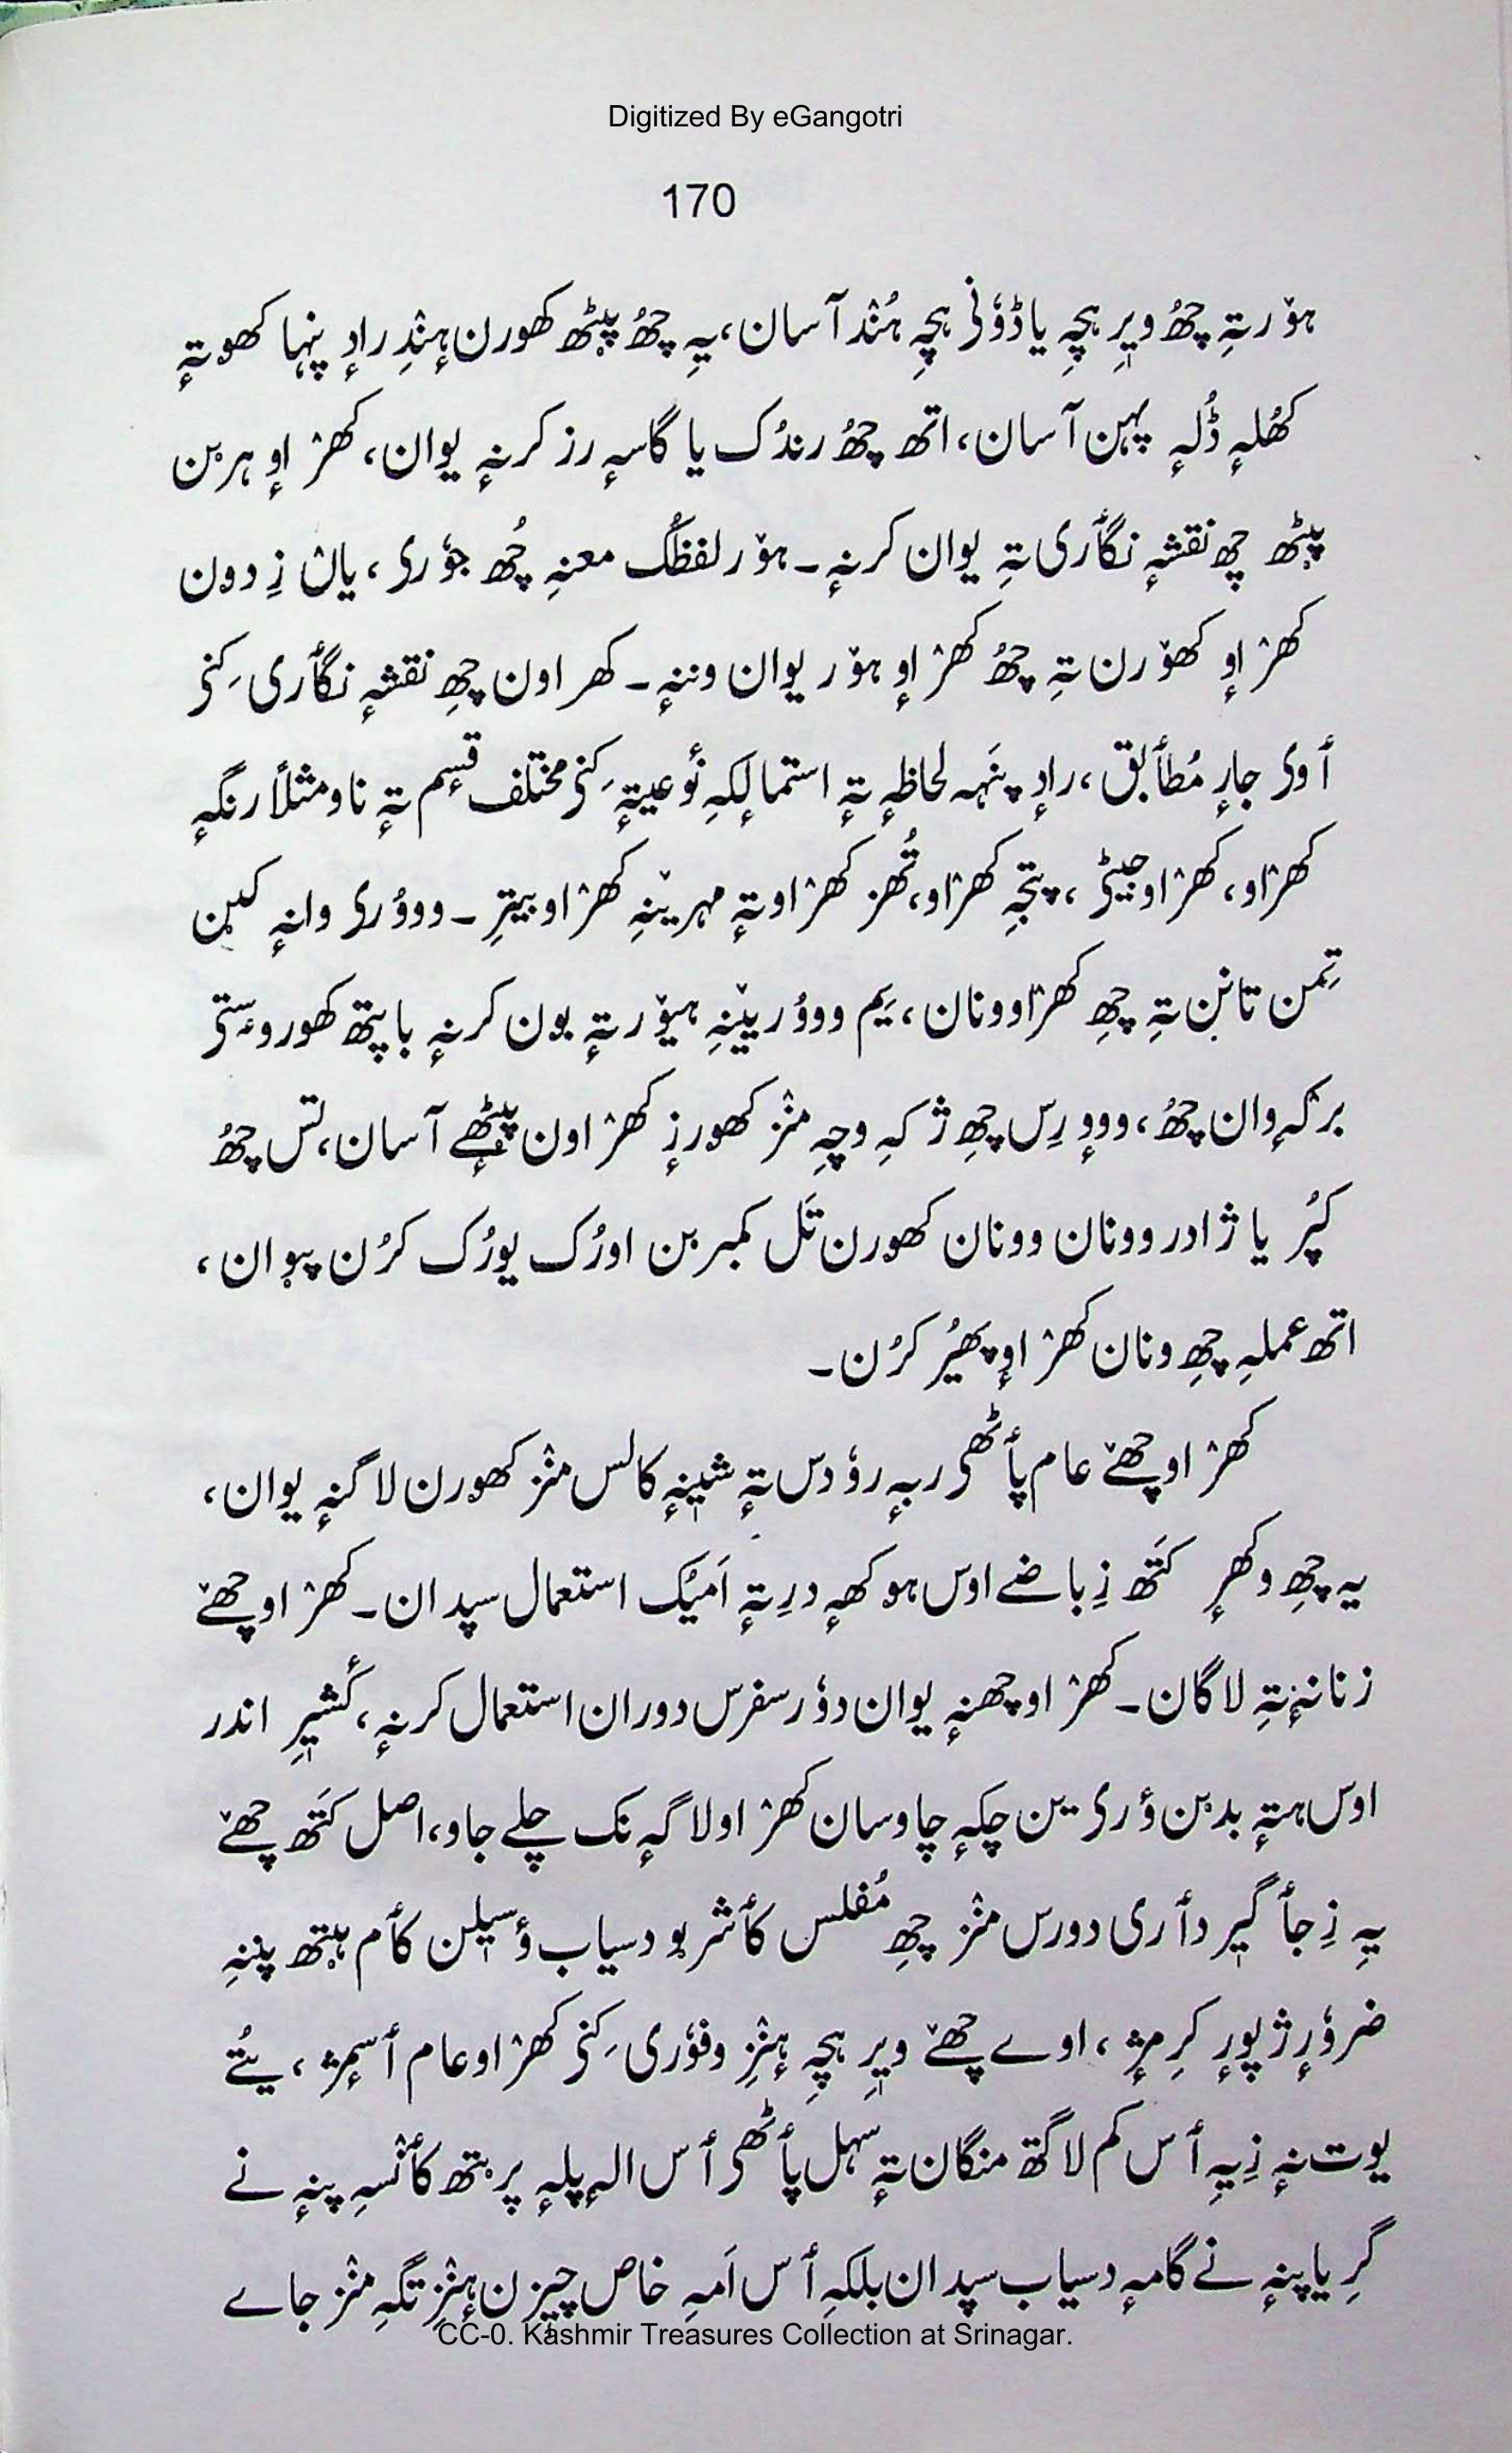 Digitized By eGangotri
170
ہۆر تہِ چھُ ویٖرِ ہچہِ یا ڈوٗنی ہچہِ ہُنٛد آسان، یہِ چھُ پیٹھ کھورن ہِنٛدِ رادٕ پنہا کھوتہٕ
کھُلہٕ ڈُلہٕ پہن آسان، اتھ چھُ رندُک یا گاسہٕ رز کرنہٕ یوان، کھرٛاوٕ ہربن
پیٹھ چھ نقشہٕ نگأری تہِ یوان کرنہٕ۔ ہۆر لفظُک معنہِ چھُ جوٗری، یانؠ زِ دون
کھرٛاوٕ کھۆرن تہِ چھُ کھرٛاوٕ ہۆر یوان وننہٕ۔ کھراون چھِ نقشہٕ نگأری کِنؠ
أوی جارٕ مُطأبق، رادٕ پنَہہ لحاظہٕ تہٕ استمالٕکہِ نوٗعیتہٕ کِنؠ مختلف قٕسم تہٕ ناو مثلاً رنگہٕ
کھرٛاو، کھرٛاو جیٹی، پتجہِ کھرٛاو، تُھز کھرٛاو تہٕ مہرینہِ کھرٛاو بیترِ۔ وووٗری وانہٕ کین
تِمن تانؠن تہِ چھِ کھرٛاو ونان، یَم وووٗرینہِ ہیۆر تہٕ بون کرنہٕ باپتھ کھورو سٟتؠ
برکہٕ وان چھُ، وووٕرِس چھِ ژکہِ وچہِ منٛز کھورزٕ کھرٛاون پیٹھٕے آسان، تس چھُ
کپُر یا ژادر وونان وونان کھورن تَل کمبربن اورُک یورُک کرُن پیوان،
اتھ عملہِ چھِ ونان کھرٛاوٕ پھیُر کرُن۔
کھرٛاو چھےٚ عام پأٹھی ربہٕ روٗدس تہٕ شیٖنہٕ کالس منٛز کھورن لاگنہٕ یوان،
یہ چھِ وکھرٕ کَتھ زِ باضے اوس ہوکھہٕ درِ تہٕ اَمیُک استعمال سپدان۔ کھرٛاو چھےٚ
زنانہٕ تہِ لاگان۔ کھرٛاو چھنہٕ یوان دوٗر سفرس دوران استعمال کرنہٕ، کٔشیٖرِ اندر
اوس ہتہٕ بدبن ؤری ین چکہٕ چاوسان کھرٛاو لاگہٕ نک چلے جاو، اصل کَتھ چھےٚ
یہِ زِ جأگیٖر دأری دورس منٛز چھِ مُفلس کأشر بو دسیاب ؤسیلن کأم ہیتھ پننہِ
ضروٗرٕژ پورٕ کرِمژٕ، اوے چھےٚ ویٖرِ ہچہِ ہِنٛزِ وفوٗری کِنؠ کھرٛاو عام أسمٕژ، یُتے
یوت نہٕ زِ یہِ أس کم لاگتھ منگان تہٕ سہل پأٹھی أس الہٕ پلہٕ پربتھ کأنسہِ پنہٕ نے
گرِ یا پنہٕ نے گامہٕ دسیاب سپدان بلکہِ أس اَمہِ خاص چیزن ہِنٛزِ تگہِ منٛز جاے
CC-0. Kashmir Treasures Collection at Srinagar.